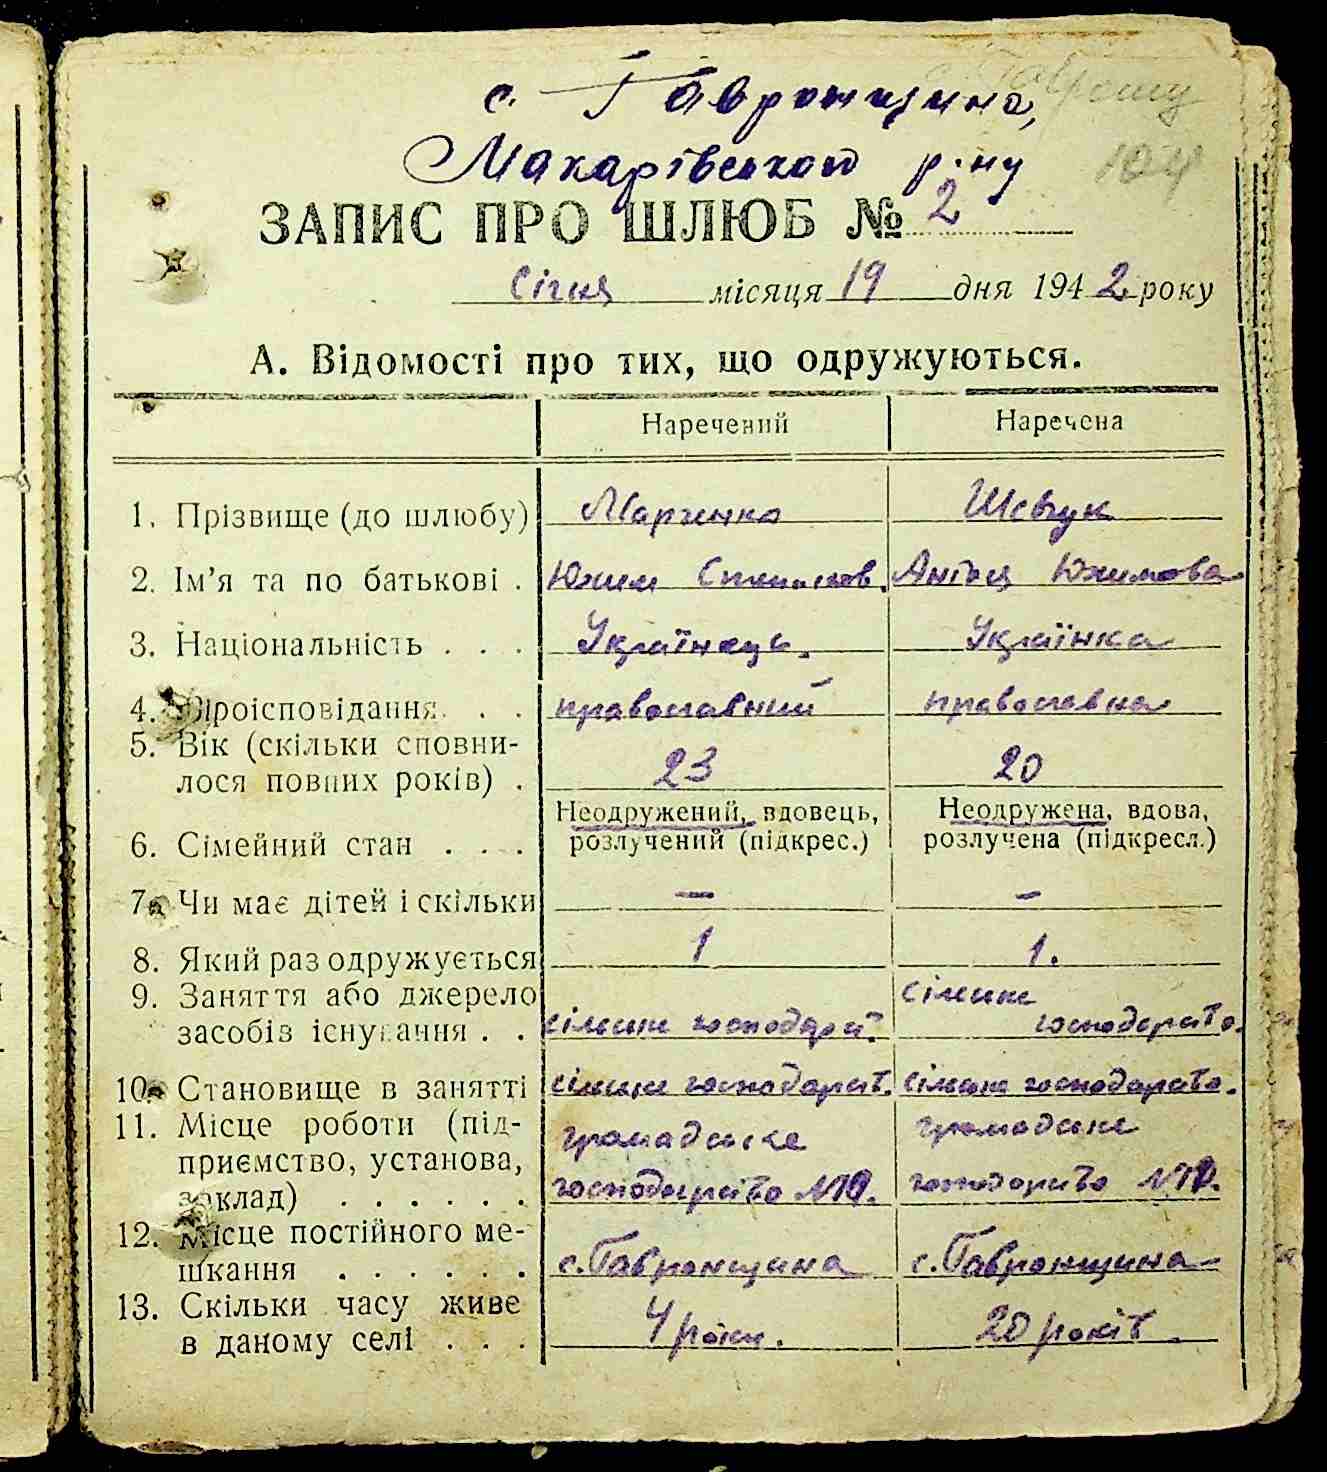 с. Гавронщина,
Макарівського р-ну 104
ЗАПИС ПРО ШЛЮБ № 2
Січня місяця 19 дня 1942 року
А. Відомості про тих, що одружуються.
Наречений Наречена
1. Прізвище (до шлюбу) Марченко Шевчук
2. Ім’я та по батькові . Юхим Юхимова
3. Національність . . . Українець. Українка
4. Віроісповідання. . . православний православна
5. Вік (скільки сповни-
лося повних років) . 23 20
Неодружений, вдовець, Неодружена, вдова,
6. Сімейний стан . . . розлучений (підкрес.) розлучена (підкресл.)
7. Чи має дітей і скільки — —
8. Який раз одружується 1 1.
9. Заняття або джерело сільське
засобів існування . . сільське господар. господарство.
10. Становище в занятті сільське господарст. сільське господарство.
11. Місце роботи (під- громадське громадське
приємство, установа, господарство №10. господарство №10.
заклад) . . . . . .
12. Місце постійного ме-
шкання . . . . . . с. Гавронщина с. Гавронщина
13. Скільки часу живе
в даному селі . . . 4 роки. 20 років.